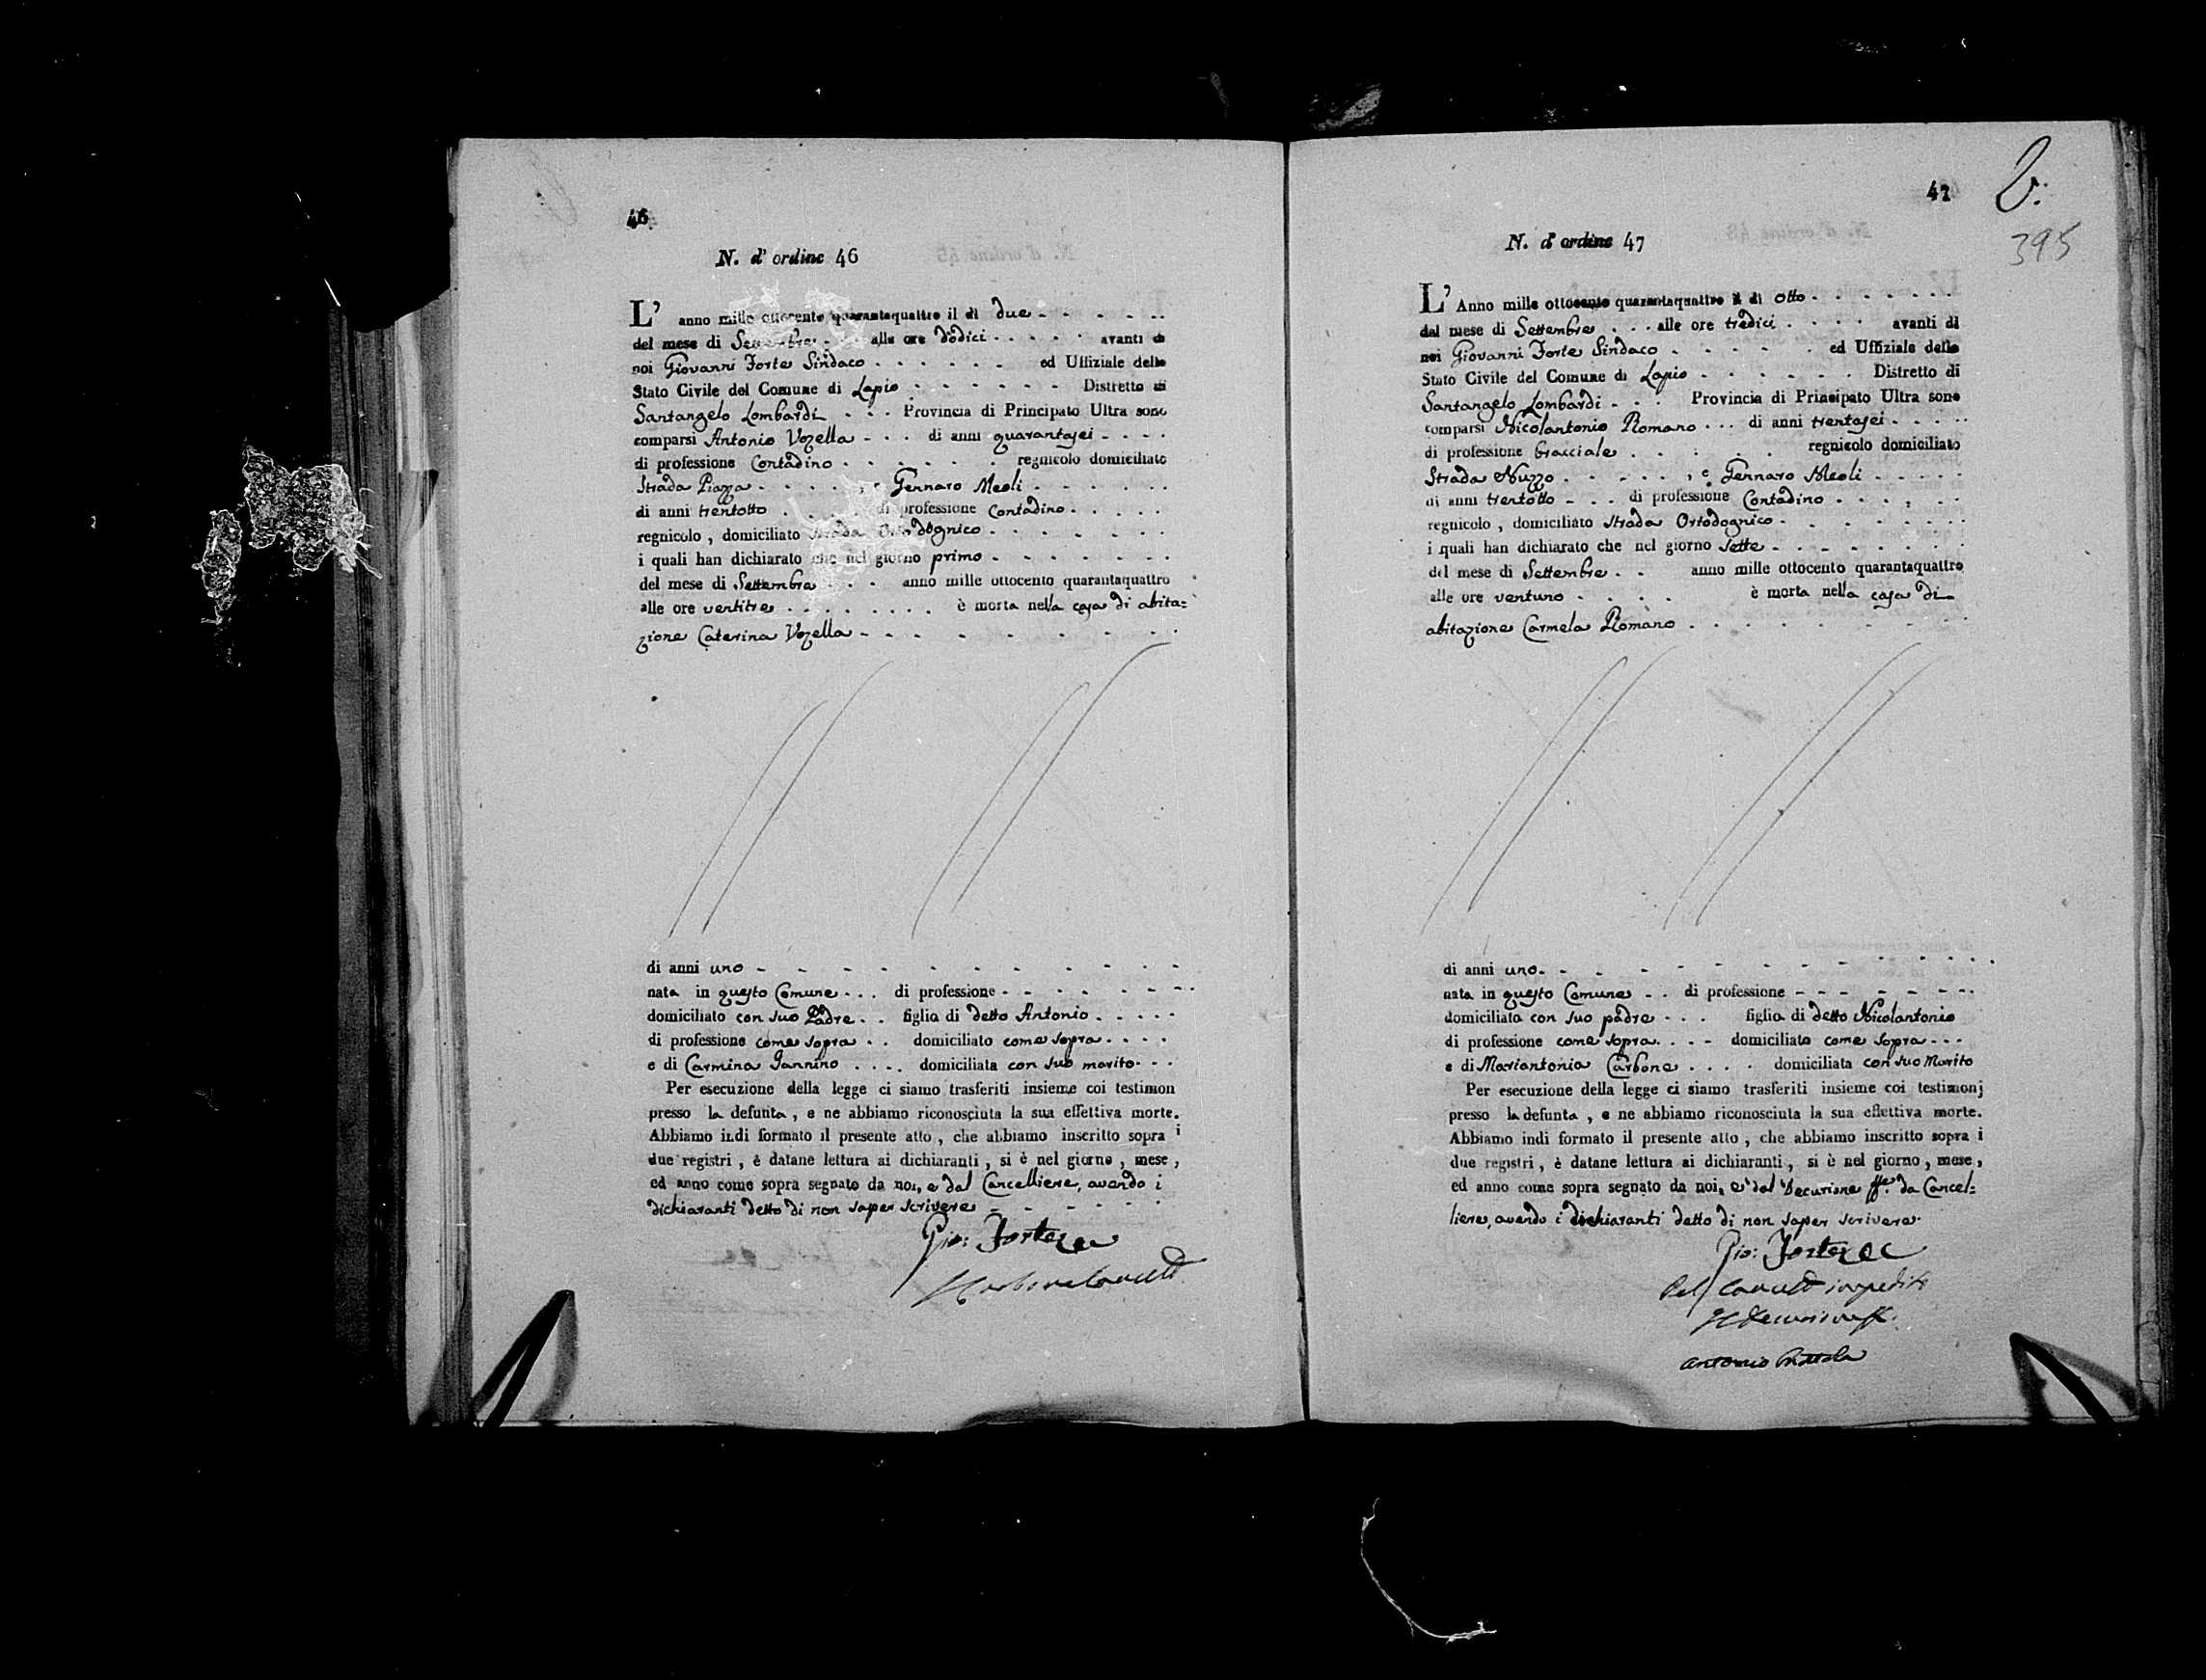 46
N. d' ordine 46
L' anno mille ottocento quarantaquattro il dì due
del mese di Settembre alle ore dodici avanti di
noi Giovanni Forte Sindaco ed Uffiziale dello
Stato Civile del Comune di Lapio Distretto di
Santangelo Lombardi Provincia di Principato Ultra sono
comparsi Antonio Vozella di anni quarantasei
di professione Contadino regnicolo domiciliato
Strada Piazza , e Gennaro Meoli
di anni trentotto di professione Contadino
regnicolo , domiciliato Strada Ortodognico
i quali han dichiarato che nel giorno primo
del mese di Settembre anno mille ottocento quarantaquattro
alle ore ventitre è morta nella casa di abita=
zione Caterina Vozella
di anni uno
nata in questo Comune di professione
domiciliato con suo Padre figlia di detto Antonio
di professione come sopra domiciliato come sopra
e di Carmina Iannino domiciliata con suo marito
Per esecuzione della legge ci siamo trasferiti insieme coi testimon
presso la defunta , e ne abbiamo riconosciuta la sua effettiva morte.
Abbiamo indi formato il presente atto , che abbiamo inscritto sopra i
due registri , è datane lettura ai dichiaranti , si è nel giorno , mese ,
ed anno come sopra segnato da noi, e dal Cancelliere, avendo i
dichiaranti detto di non saper scrivere
Gio: Forte
47
V.
395
N. d' ordine 47
L' Anno mille ottocento quarantaquattro il dì otto
dal mese di Settembre alle ore tredici avanti di
noi Giovanni Forte Sindaco ed Uffiziale dello
Stato Civile del Comune di Lapio Distretto di
Santangelo Lombardi Provincia di Principato Ultra sono
comparsi Nicolantonio Romano di anni trentasei
di professione bracciale regnicolo domiciliato
Strada Nuzzo , e Gennaro Meoli
di anni trentotto di professione Contadino
regnicolo , domiciliato Strada Ortodognico
i quali han dichiarato che nel giorno sette
del mese di Settembre anno mille ottocento quarantaquattro
alle ore ventuno è morta nella casa di
abitazione Carmela Romano
di anni uno
nata in questo Comune di professione
domiciliato con suo padre figlia di detto Nicolantonio
di professione come sopra domiciliato come sopra
e di Mariantonia Carbone domiciliata con suo Marito
Per esecuzione della legge ci siamo trasferiti insieme coi testimonj
presso la defunta , e ne abbiamo riconosciuta la sua effettiva morte.
Abbiamo indi formato il presente atto , che abbiamo inscritto sopra i
due registri , è datane lettura ai dichiaranti , si è nel giorno , mese ,
ed anno come sopra segnato da noi, e dal Decurione ff.e da Cancel=
liere, avendo i dichiaranti detto di non saper scrivere
Gio: Forte
Pel impedito
Antonio